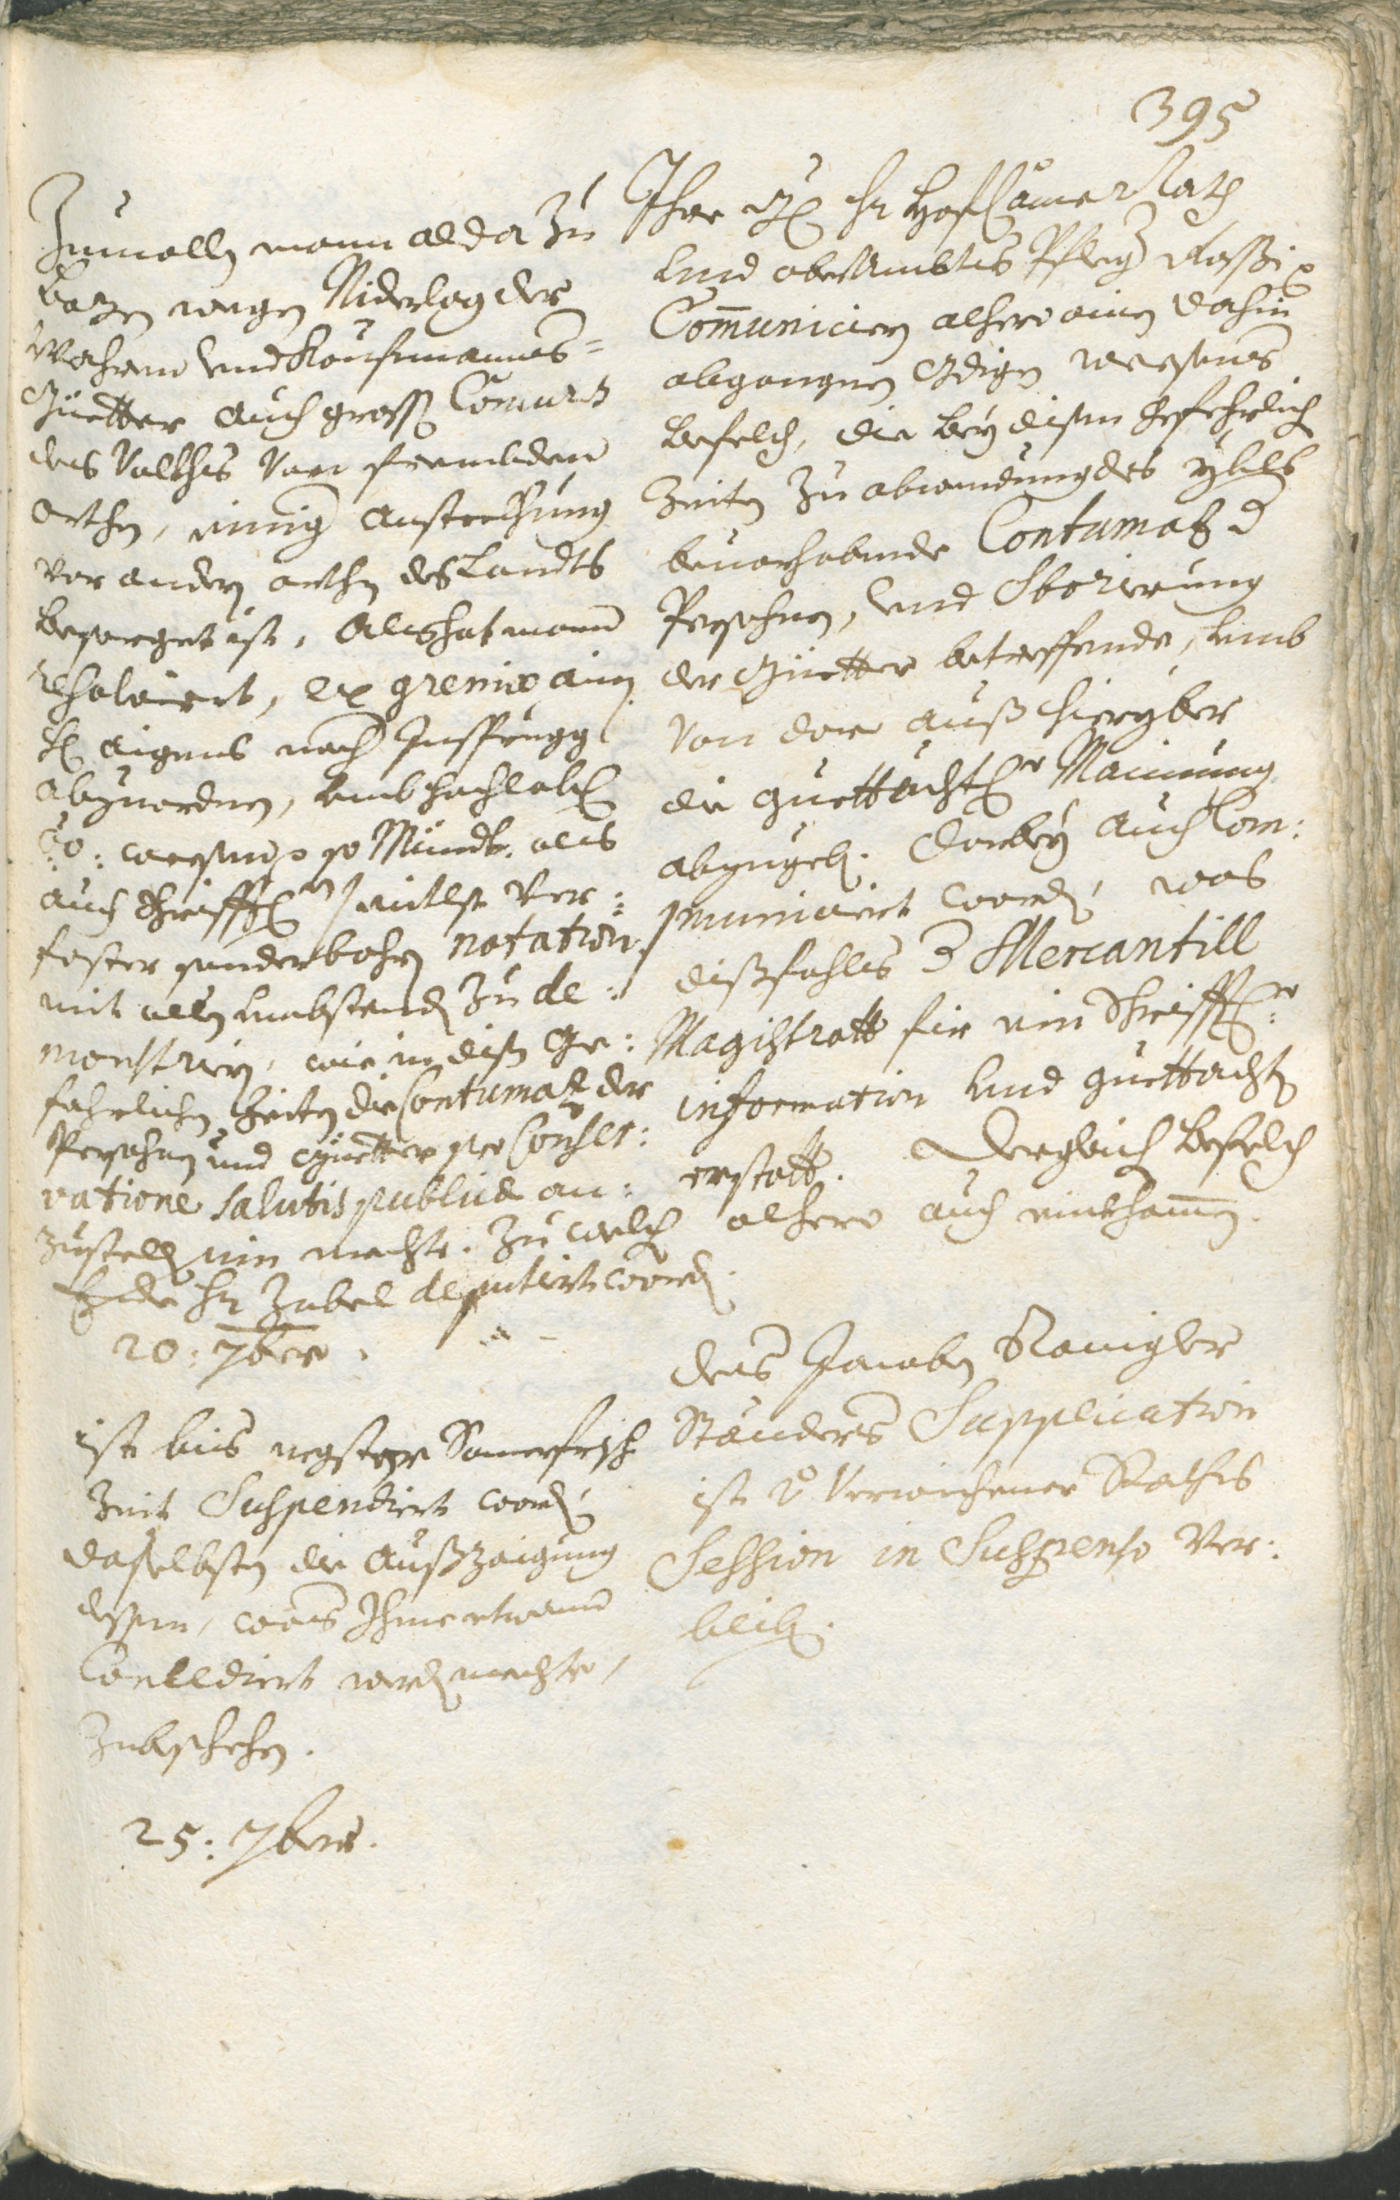 395
Zumalln mann alda zu
Bozen wegen Niderlag der
Wahren und Kaufmanns=
Güetter auch gross Comerz
des Volkhs von frembden
orthen, einig ansteckhung
vor andern orthen des Landts
besorget ist, Als hat mann
resolviert, ex gremio ainen
aigens nach Insprugg
abzuordnen, umb hochlobl
o: ö: weesen so Mündtl. als
auch schrifftl mitlst ver:
faster sonderbahren notation
mit allen umbstenden zu de:
monstrirn, wie in disen Ge:
fehrlichen Zeiten die Contumaz der
Persohnen und Güetter pro Conser:
vatione salutis publicæ an:
zustellen sein mechte. Zu welchem
Ende Hr Zubel deputirt worden.
20: 7ber.
ist bis negster Somerfrisch
Zeit Suspendiert worden
daselbsten die Ausszaigung
dessen, was Ihme etwann
Concediert werden mechte,
zubeschehen.
25: 7bers.
Ihro Hr Hof Camer Rath
und obrist Ambts Pfleger Rossi
Communiciern alhero ainen dahin
abgangnen Gdigen weesens
Befelch, die bey disen gefehrlich
Zeiten zu abwendung des ybels
bevorhabende Contumaz d
Persohnen, und Sborierung
der Güetter betreffende, umb
von dar auss hieryber
die guettachtl Mainung
abzugeben. Darbey auch Com:
municiert worden, was
dissfahls Mercantill
Magistratt für ein Schrifftl:
information und guettachten
erstatt. Dergleich Befelch
alhero auch einkhomen.
Des Jacoben Ranigler
Standers Supplication
ist verwichener Raths
Session in Suspenso ver:
bliben.